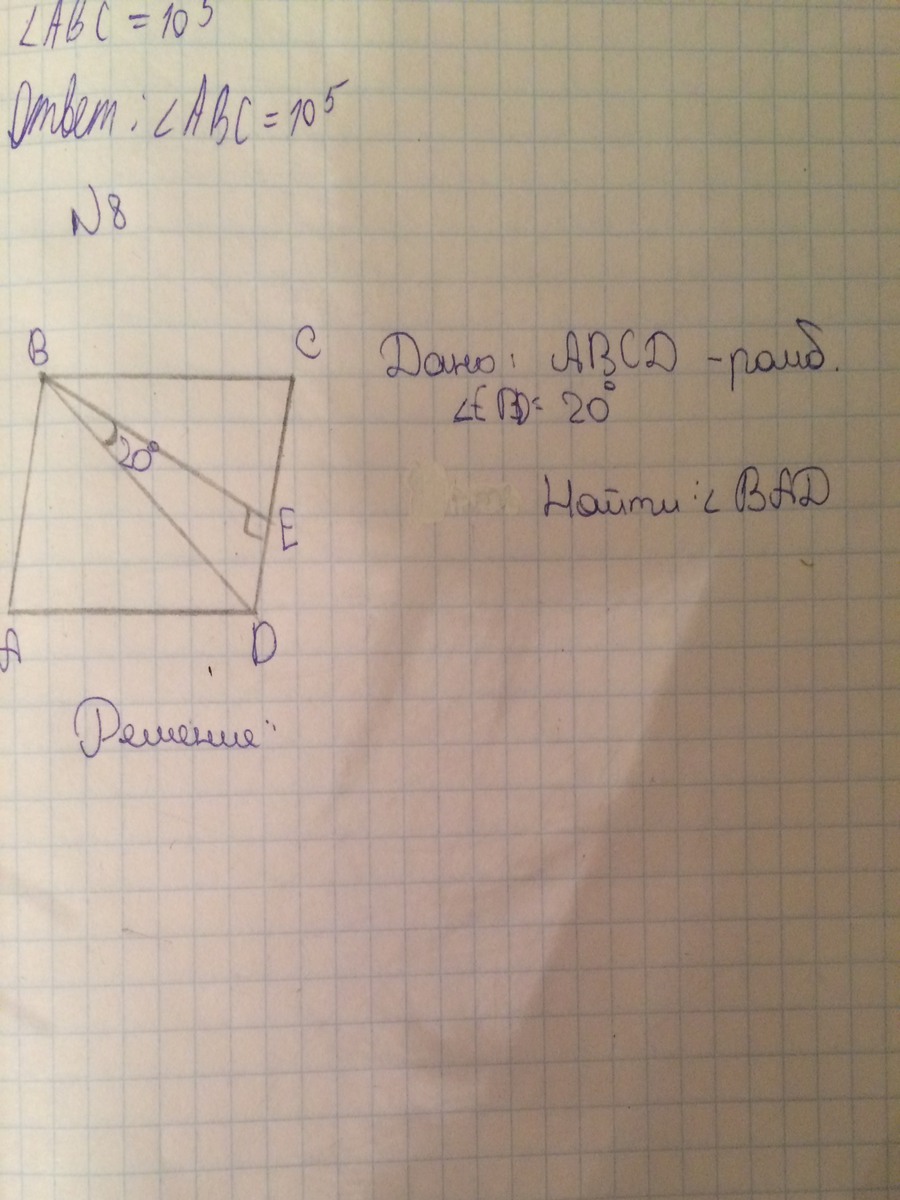 ∠ABC = 105
Ответ: ∠ABC = 105
N8
B
C
Дано: ABCD - ромб.
∠EBD = 20°
20°
Найти: ∠BAD
E
A
D
Решение: